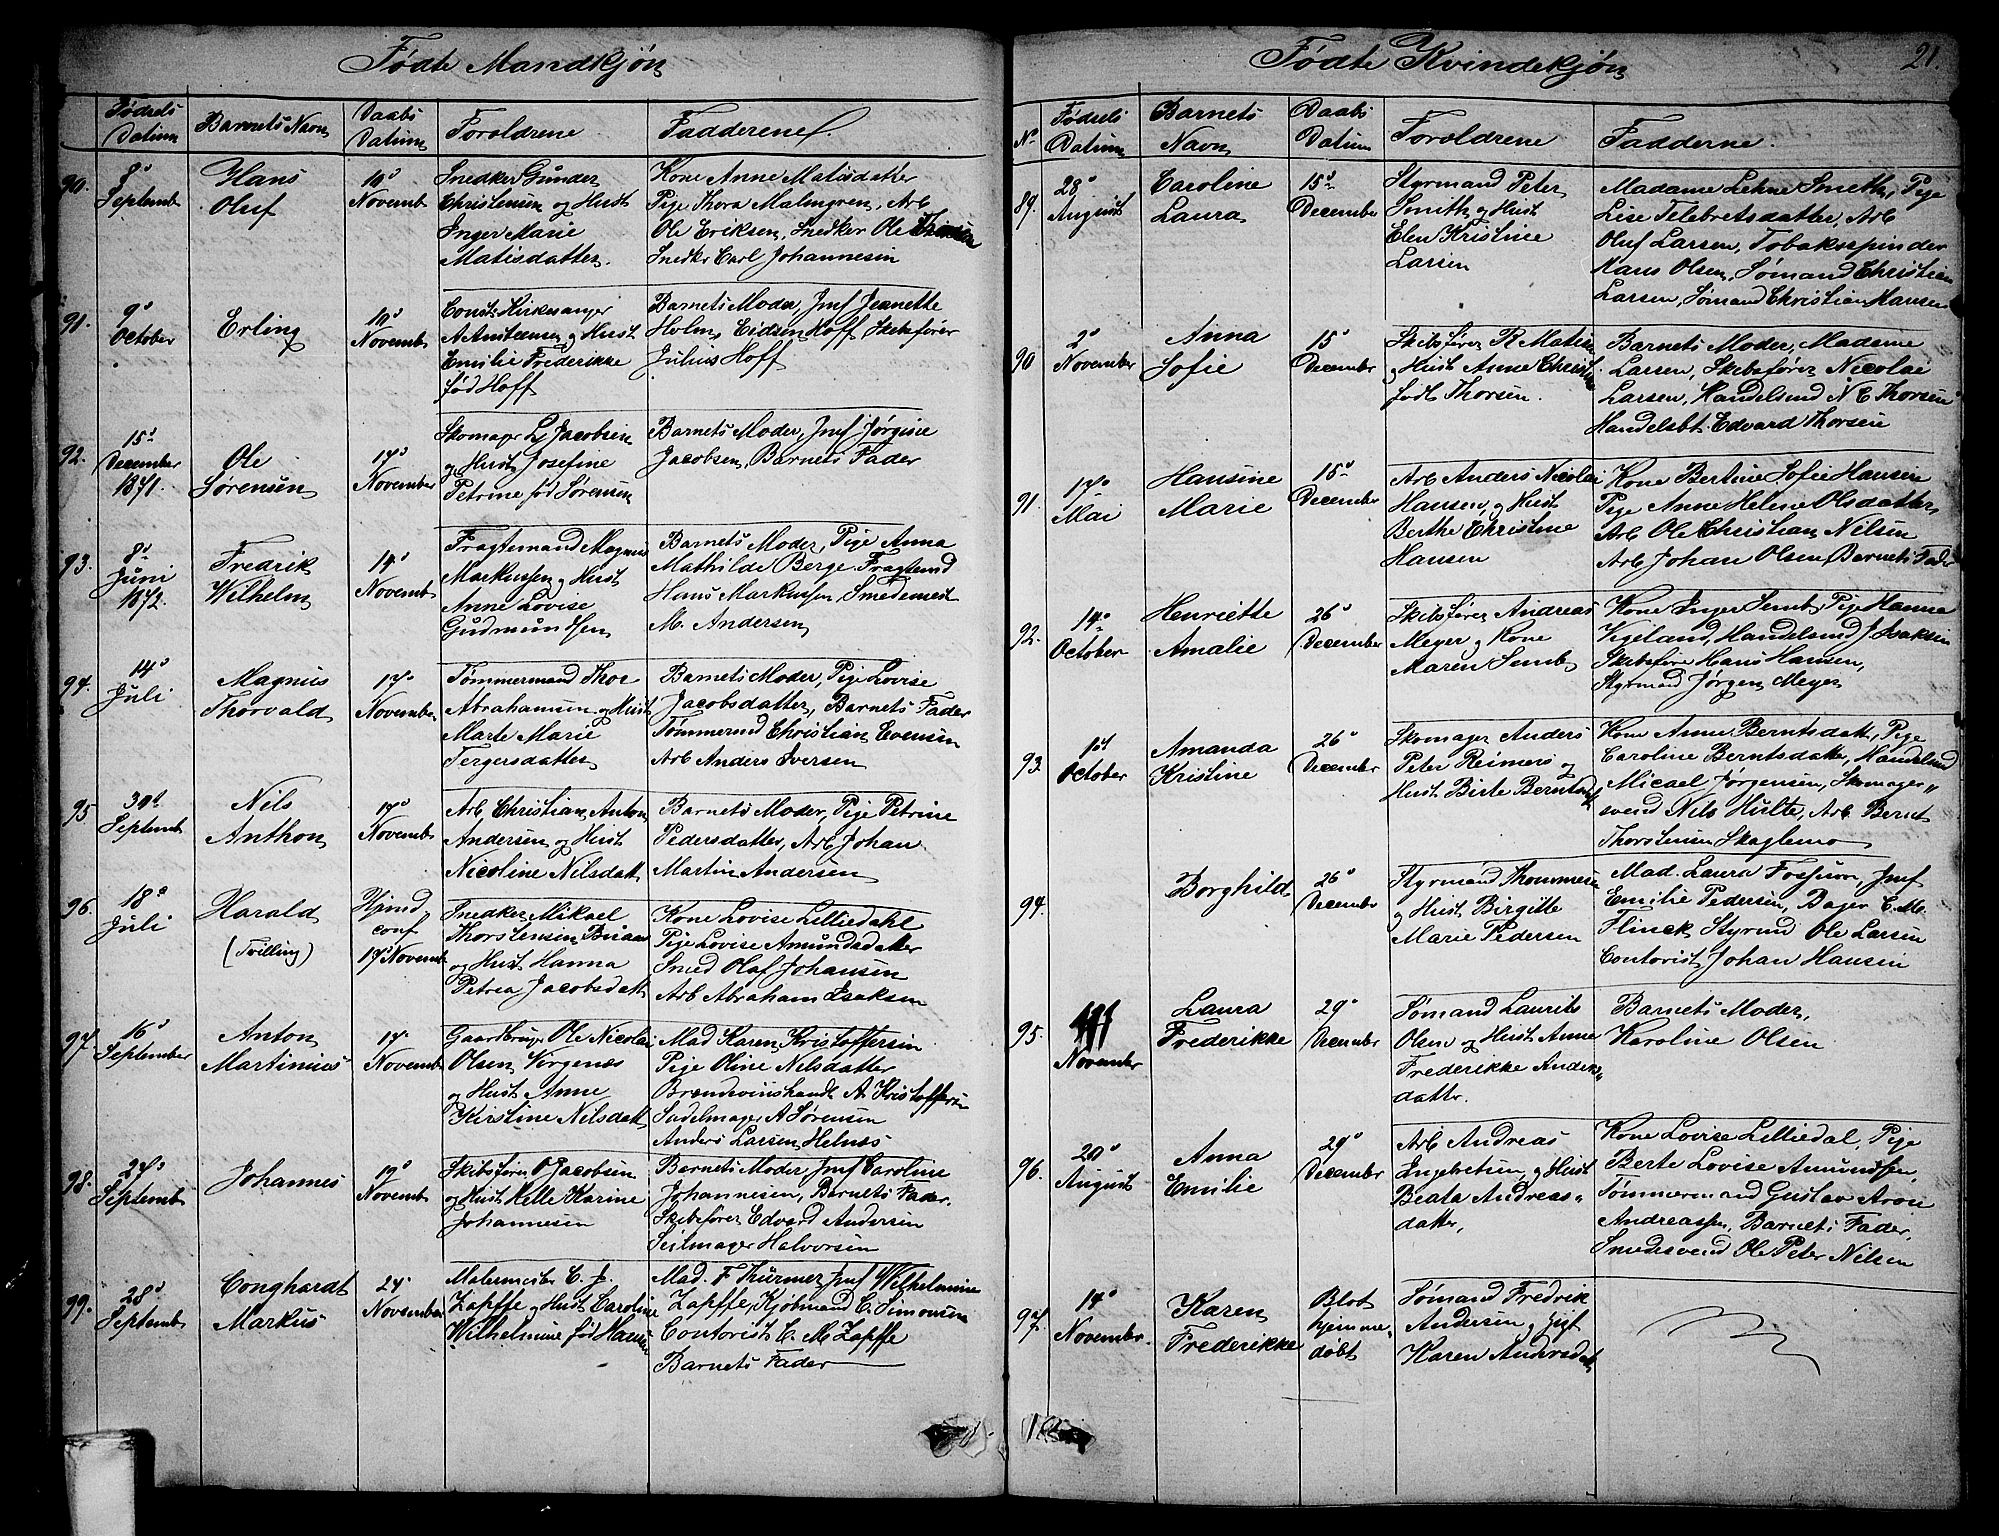 Fødte Mandkjøn
Fødsels Datum
Barnets Navn
Daabs Datum
Foreldrene
Fadderne
90.
8de Septemb
Hans
Oluf
10de Novemb
Snedker Gunder
Christensen og Hust
Inger Marie
Matisdatter.
Kone Anne Matisdatter
Pige Thora Malmgren, Arb
Ole Eriksen, Snedker Ole
Snedk Carl Johannesen
91.
9de October
Erling
10de Novemb
Const. Kirkesanger
A Anstensen og Hust
Emilie Frederikke
fød Hoff
Barnets Moder, Jmf Jeanette
Holm, Eidsen Hoff, Skibsfører
Julius Hoff
92.
15de December 1871.
Ole
Sørensen
17de November
Skomager L. Jacobsen
og Hust Josefine
Petrine fød Sørensen
Barnets Moder, Jmf Jørgine
Jacobsen, Barnets Fader
93.
8de Juni 1872.
Fredrik
Wilhelm
14de Novemb
Fragtemand Magnus
Markussen og Hust
Anne Lovise
Gudmundsen
Barnets Moder, Pige Anna
Mathilde Berge Fragtemd
Hans Markussen, Smedemest
M. Andersen
94.
14de Juli
Magnus
Thorvald
17de November
Tømmermand Thor
Abrahamsen og Hust
Marte Marie
Tergersdatter
Barnets Moder, Pige Lovise
Jacobsdatter, Barnets Fader
Tømmermd Christian Evensen
Arb Anders Iversen
95
30te Septemb
Nils
Anthon
17de Novemb
Arb, Christian Anton
Andersen og Hust
Nicoline Nilsdatt
Barnets Moder, Pige Petrine
Pedersdatter, Arb Johan
Martin Andersen
96.
18de Juli
Harald
(Tvilling)
Hjemd
conf
17de Novemb
Snedker Mikael
Thorstensen Biraas
og Hust Hanna
Petrea Jacobsdatt
Kone Lovise Lilliedahl
Pige Lovise Amundsdatter
Smed Olaf Johansen
Arb Abraham Isaksen
97.
16de September
Anton
Martinius
17de Novemb
Gaardbruger Ole Nicolai
Olsen Virgenæs
og Hust Anne
Kirstine Nilsdatt
Mad Karen Kristoffersen
Pige Oline Nilsdatter
Brændeviinshandl A. Kristoffersen
Sadelmager A Sørensen
Anders Larsen Helnæs
98.
27de Septemb
Johannes
19de Novemb
Skibsfører O Jacobsen
og Hust Helle Karine
Johannesen
Barnets Moder Jmf Caroline
Johannesen, Barnets Fader.
Skibsfører Edvard Andersen
Seilmager Halvorsen
99.
28de Septemb
Conghardt
Markus
24de November
Malermester C. J.
Zapffe og Hust Caroline
Wilhelmine fød Hansen
Mad. F Thürmer Jmf Wilhelmine
Zapffe, Kjøbmand C. Simonsen
Contorist C. M. Zapffe
Barnets Fader
Fødte Kvindekjøn
21.
No
Fødsels Datum
Barnets Navn
Daabs Datum
Foreldrene
Fadderne.
89.
28de August
Caroline
Laura
15de December
Styrmand Peter
Smith og Hust
Elen Kristine
Larsen
Madame Lehne Smeth, Pige
Lise Telebretsdatter, Arb
Oluf Larsen, Tobaksspinder
Hans Olsen, Sømand Christian
Larsen, Sømand Christian Hansen
90
2de November
Anna
Sofie
15de December
Skibsfører R Matisen
og Hust Anne Christine
født Thorsen.
Barnets Moder, Madame
Larsen, Skibsfører Nicolai
Larsen, Handelsmd N C Thorsen
Handelsbt. Edvard Thorsen
91.
17de Mai
Hansine
Marie
15de December
Arb Anders Nicolai
Hansen, og Hust
Berthe Christine
Hansen
Kone Bertine Sofie Hansen
Pige Anne Helene Olsdatter,
Arb Ole Christian Nilsen
Arb Johan Olsen, Barnets Fader
92.
14de October
Henriette
Amalie
26de December
Skibsfører Andreas
Meyer og Kone
Maren Semb
Kone Inger Semb, Pige Hanna
Vigeland, Handelsmd J. Isaksen
Skibsfører Hans Hansen,
Styrmand Jørgen Meyer
93.
1st October
Amanda
Kristine
26de December
Skomager Anders
Peter Reimers og
Hust Birte Berntsdatt
Kone Anne Berntsdatt, Pige
Caroline Berntsdatter, Handelsmd
Micael Jørgensen, Skomager„
svend Nils Hulte, Arb. Bernt
Thorstensen Skaglemo
94.
Borghild
26de December
Styrmand Thommesen
og Hust Birgitte
Marie Pedersen
Mad. Laura Fosjuon, Jmf
Emilie Pedersen, Bager C. M.
Flinck Styrmd Ole Larsen
Contorist Johan Hansen
95.
November
Laura
Frederikke
29de December
Sømand Laurits
Olsen og Hust Anne
Frederikke Anders„
datter.
Barnets Moder,
Karoline Olsen
96.
20de August
Anna
Emilie
29de December
Arb Andreas
Ingebretsen og Hust
Beata Andreas„
datter,
Kone Lovise Lilliedal, Pige
Berte Lovise Amundsen,
Tømmermand Gustav Aron
Andreassen, Barnets Fader,
Smedesvend Ole Peter Nilsen
97.
14de November.
Karen
Frederikke
Blot
hjemme„
døbt
Sømand Fredrik
Andersen og Gigt
Karen Andersdat